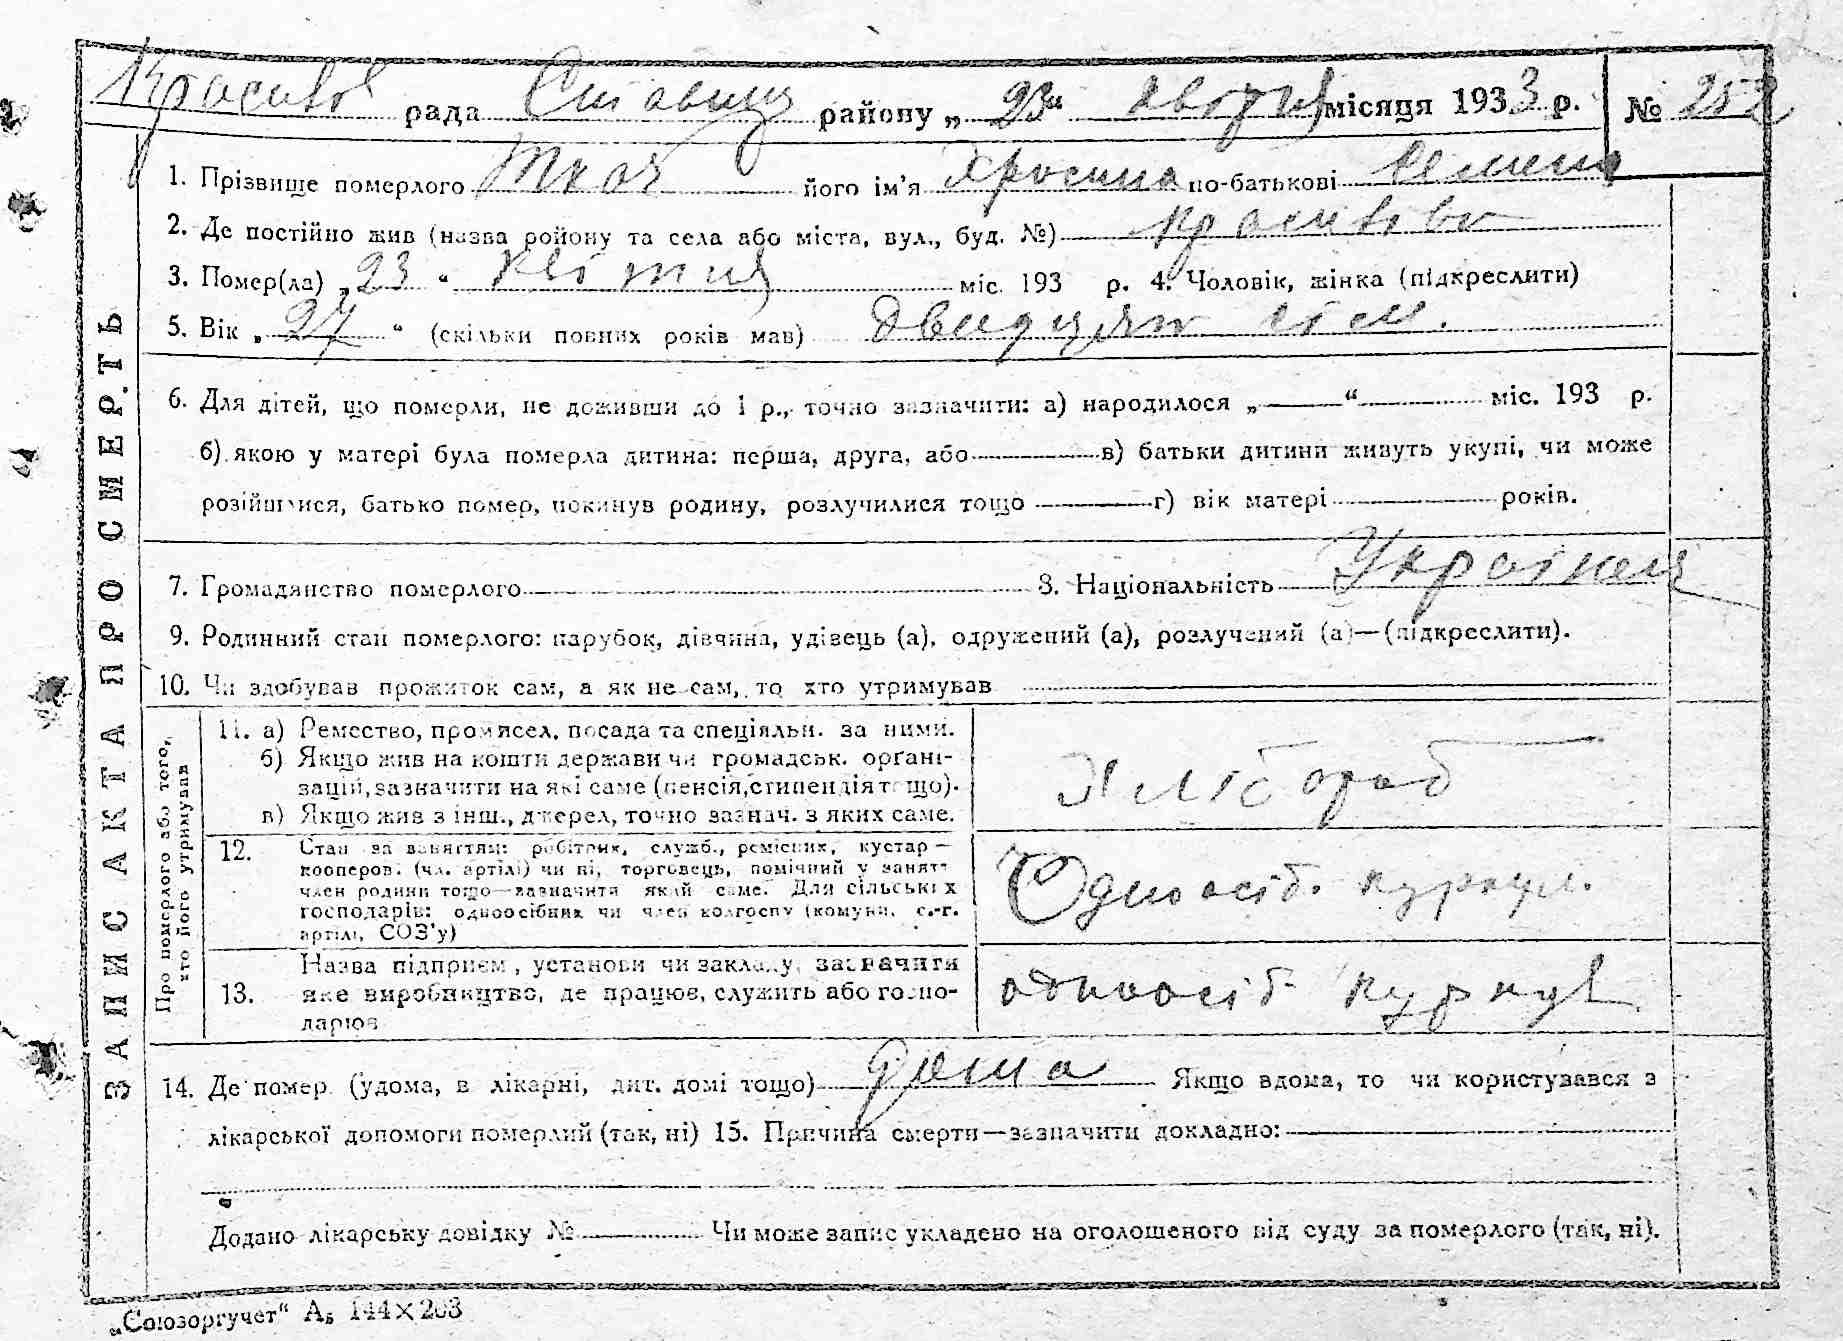 рада Ставищ району „ 23 “ місяця 1933 р. № 252
1. Прізвище померлого Ткач його ім’я по-батькові Семен
2. Де постійно жив (назва ройону та села або міста, вул., буд. №)
3. Помер(ла) „ 23 “ квітня міс. 193 р. 4. Чоловік, жінка (підкреслити)
5. Вік „ 27 “ (скільки повних років мав) двадцять сім.
6. Для дітей, що померли, не доживши до 1 р., точно зазначити: а) народилося „ “ міс. 193 р.
б) якою у матері була померла дитина: перша, друга, або в) батьки дитини живуть укупі, чи може
розійшлися, батько помер, покинув родину, розлучилися тощо г) вік матері років.
7. Громадянство померлого 8. Національність
9. Родинний стан померлого: парубок, дівчина, удівець (а), одружений (а), розлучений (а)—(підкреслити).
10. Чи здобував прожиток сам, а як не сам, то хто утримував
11. а) Ремество, промисел, посада та спеціяльн. за ними.
б) Якщо жив на кошти держави чи громадськ. орґані-
зацій, зазначити на які саме (пенсія, стипендія тощо).
в) Якщо жив з інш., джерел, точно зазнач. з яких саме.
Хлібороб
12. Стан за заняттям: робітник, служб., ремісник, кустар —
кооперов. (чл. артілі) чи ні, торговець, помічний у занятт.
член родини тощо—зазначити який саме. Для сільських
господарів: одноосібник чи член колгоспу (комуни, с.-г.
артілі, СОЗ’у)
Одноосіб. куркул.
13. Назва підприєм., установи чи закладу, зазначити
яке виробництво, де працює, служить або госпо-
дарює
одноосіб куркул
14. Де помер (удома, в лікарні, дит. домі тощо) дома Якщо вдома, то чи користувався з
лікарської допомоги померлий (так, ні) 15. Причина смерти—зазначити докладно:
Додано лікарську довідку № Чи може запис укладено на оголошеного від суду за померлого (так, ні).
ЗАПИС АКТА ПРО СМЕРТЬ
Про померлого або того,
хто його утримував
„Союзоргучет“ А₅ 144×203